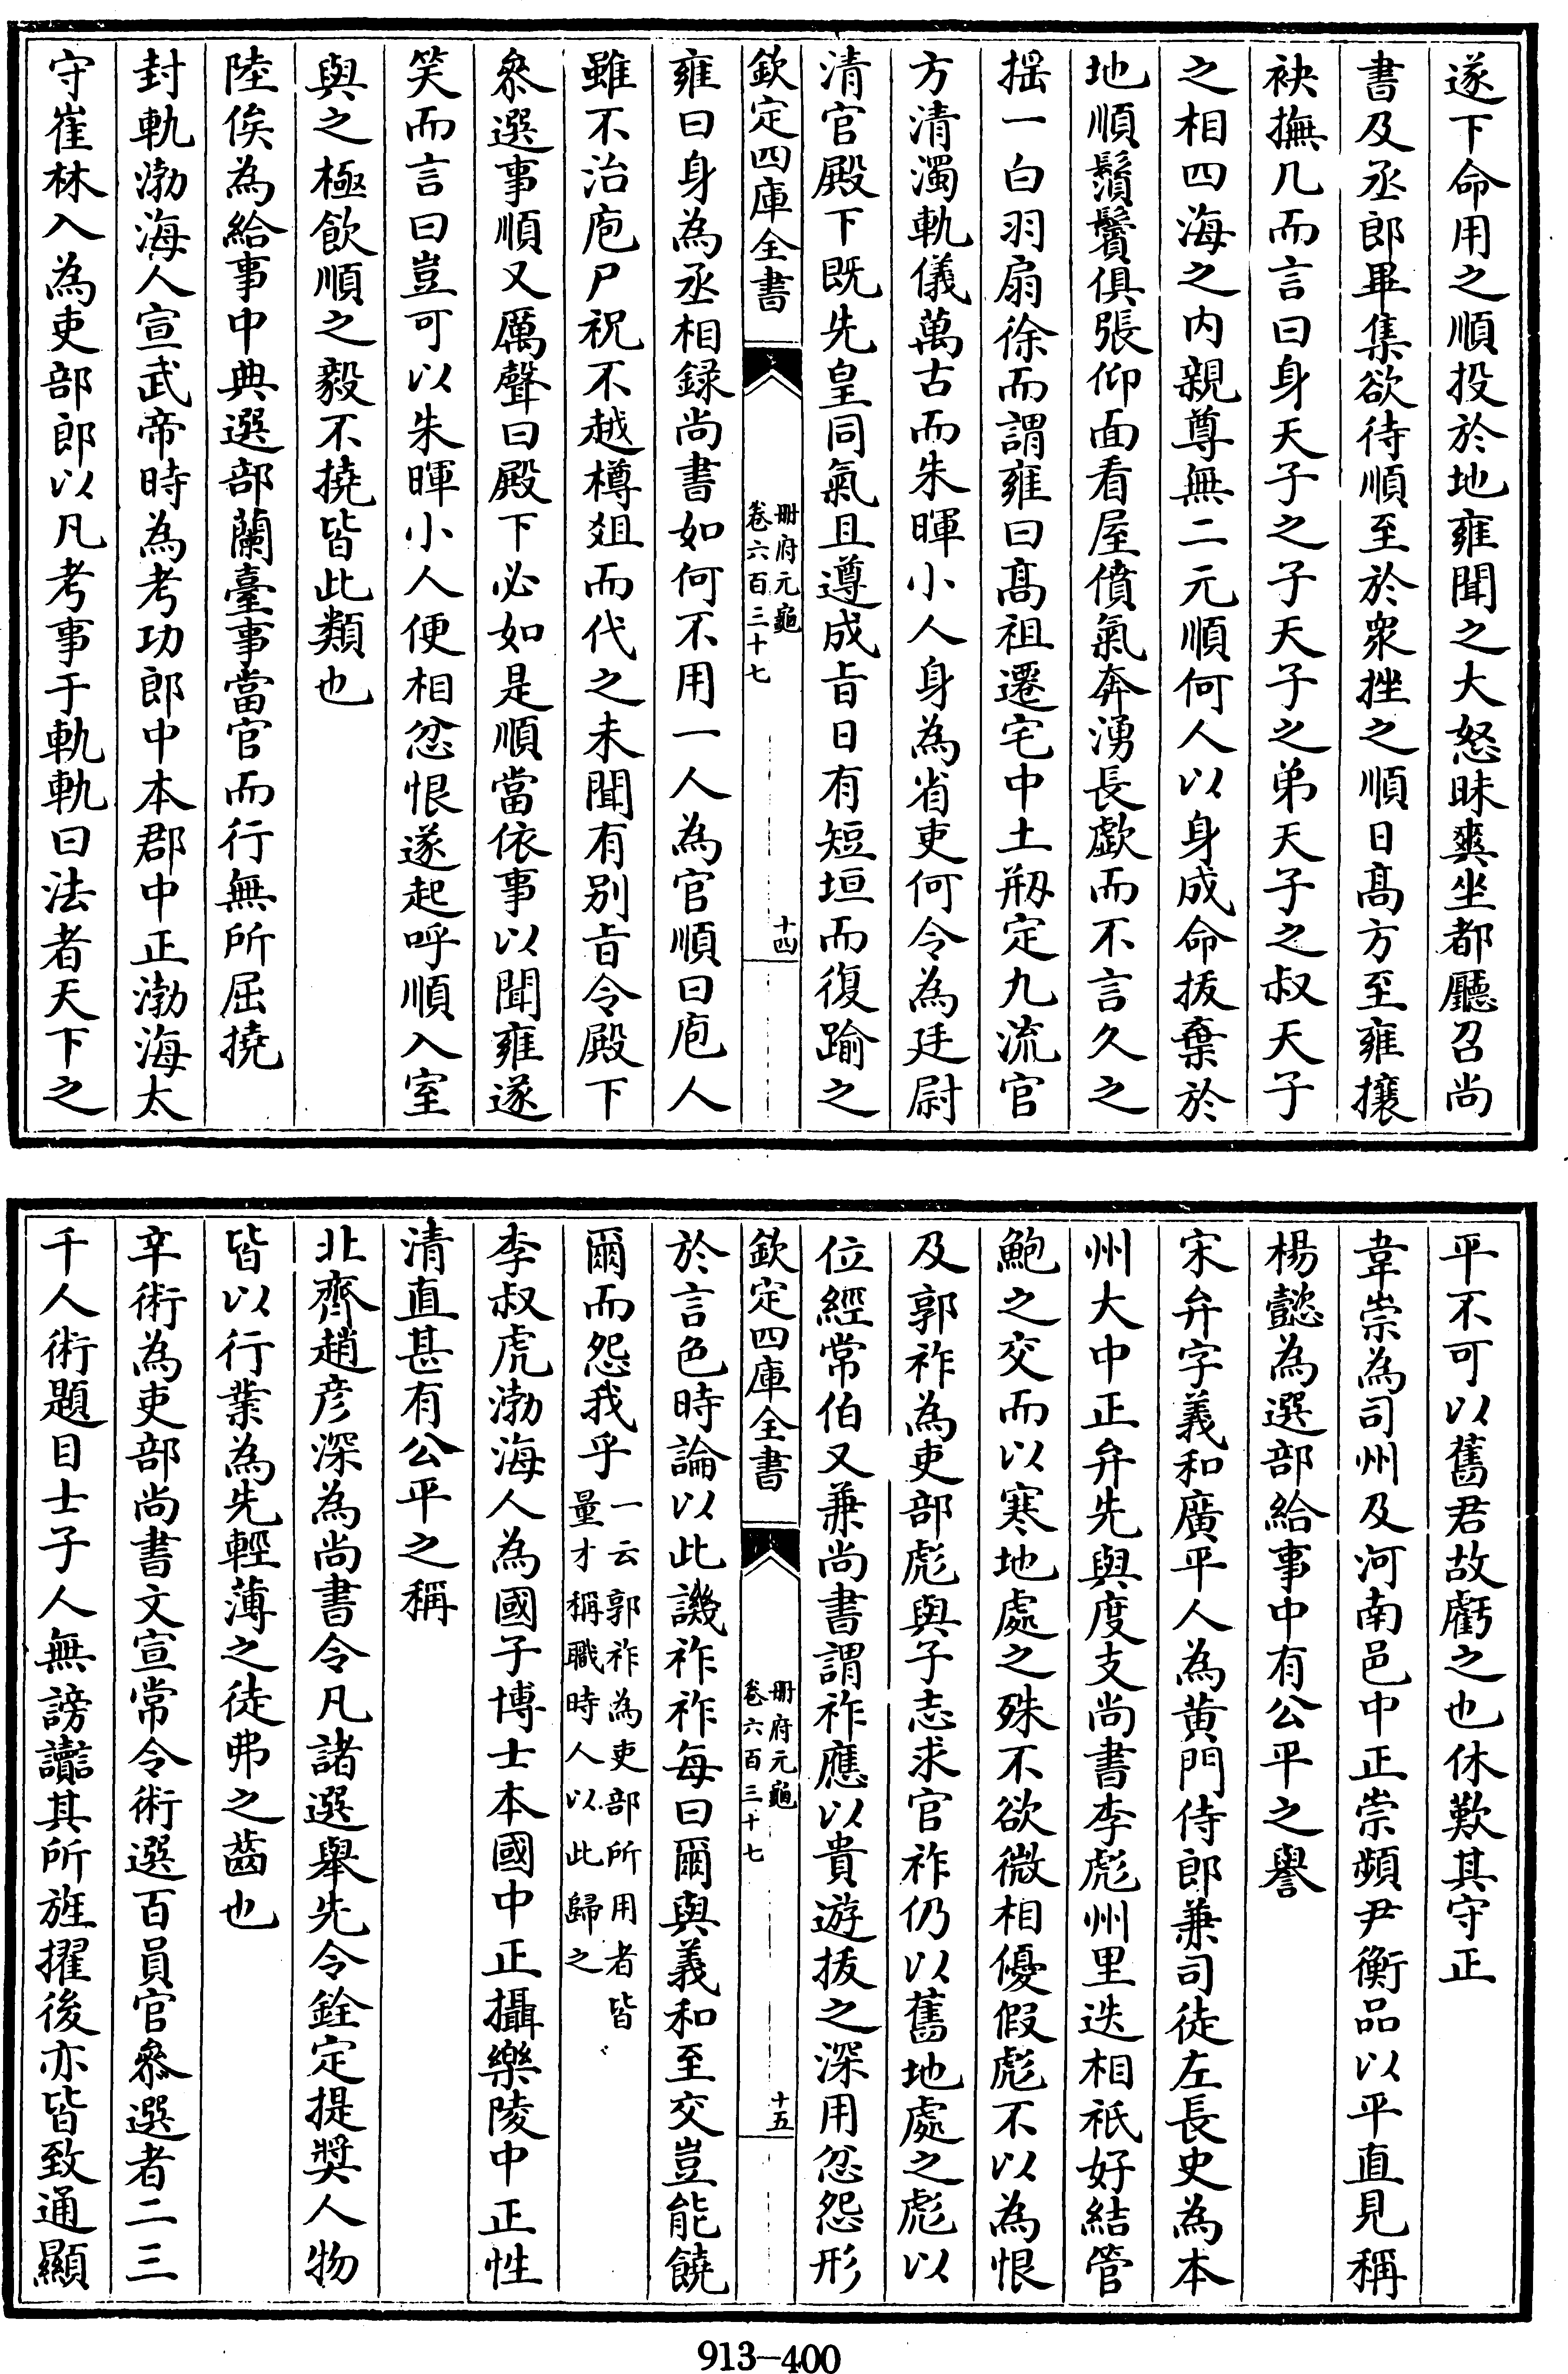 遂下命用之順投於地雍聞之大怒昧爽坐都廳召尚
書及丞郎畢集欲待順至於衆挫之順日髙方至雍攘
袂撫几而言曰身天子之子天子之弟天子之叔天子
之相四海之内親尊無二元順何人以身成命拔棄於
地順鬚鬢俱張仰面看屋僨氣奔湧長歔而不言久之
揺一白羽扇徐而謂雍曰髙祖遷宅中土剏定九流官
方清濁軌儀萬古而朱暉小人身為省吏何令為廷尉
清官殿下既先皇同氣且遵成㫖日有短垣而復踰之
欽定四庫全書
冊府元龜
卷六百三十七
十四
雍曰身為丞相録尚書如何不用一人為官順曰庖人
雖不治庖尸祝不越樽爼而代之未聞有别㫖令殿下
叅選事順又厲聲曰殿下必如是順當依事以聞雍遂
笑而言曰豈可以朱暉小人便相忿恨遂起呼順入室
與之極飲順之毅不撓皆此類也
陸俟為給事中典選部蘭臺事當官而行無所屈撓
封軌渤海人宣武帝時為考功郎中本郡中正渤海太
守崔林入為吏部郎以凡考事于軌軌曰法者天下之
平不可以舊君故虧之也休歎其守正
韋崇為司州及河南邑中正崇頻尹衡品以平直見稱
楊懿為選部給事中有公平之譽
宋弁字義和廣平人為黄門侍郎兼司徒左長史為本
州大中正弁先與度支尚書李彪州里迭相祇好結管
鮑之交而以寒地處之殊不欲微相優假彪不以為恨
及郭祚為吏部彪與子志求官祚仍以舊地處之彪以
位經常伯又兼尚書謂祚應以貴遊拔之深用忿怨形
欽定四庫全書
冊府元龜
卷六百三十七
十五
於言色時論以此譏祚祚每曰爾與義和至交豈能饒
爾而怨我乎一云郭祚為吏部所用者皆
量才稱職時人以此歸之
李叔虎渤海人為國子博士本國中正攝樂陵中正性
清直甚有公平之稱
北齊趙彦深為尚書令凡諸選舉先令銓定提奬人物
皆以行業為先輕薄之徒弗之齒也
辛術為吏部尚書文宣常令術選百員官叅選者二三
千人術題目士子人無謗讟其所旌擢後亦皆致通顯
913-400